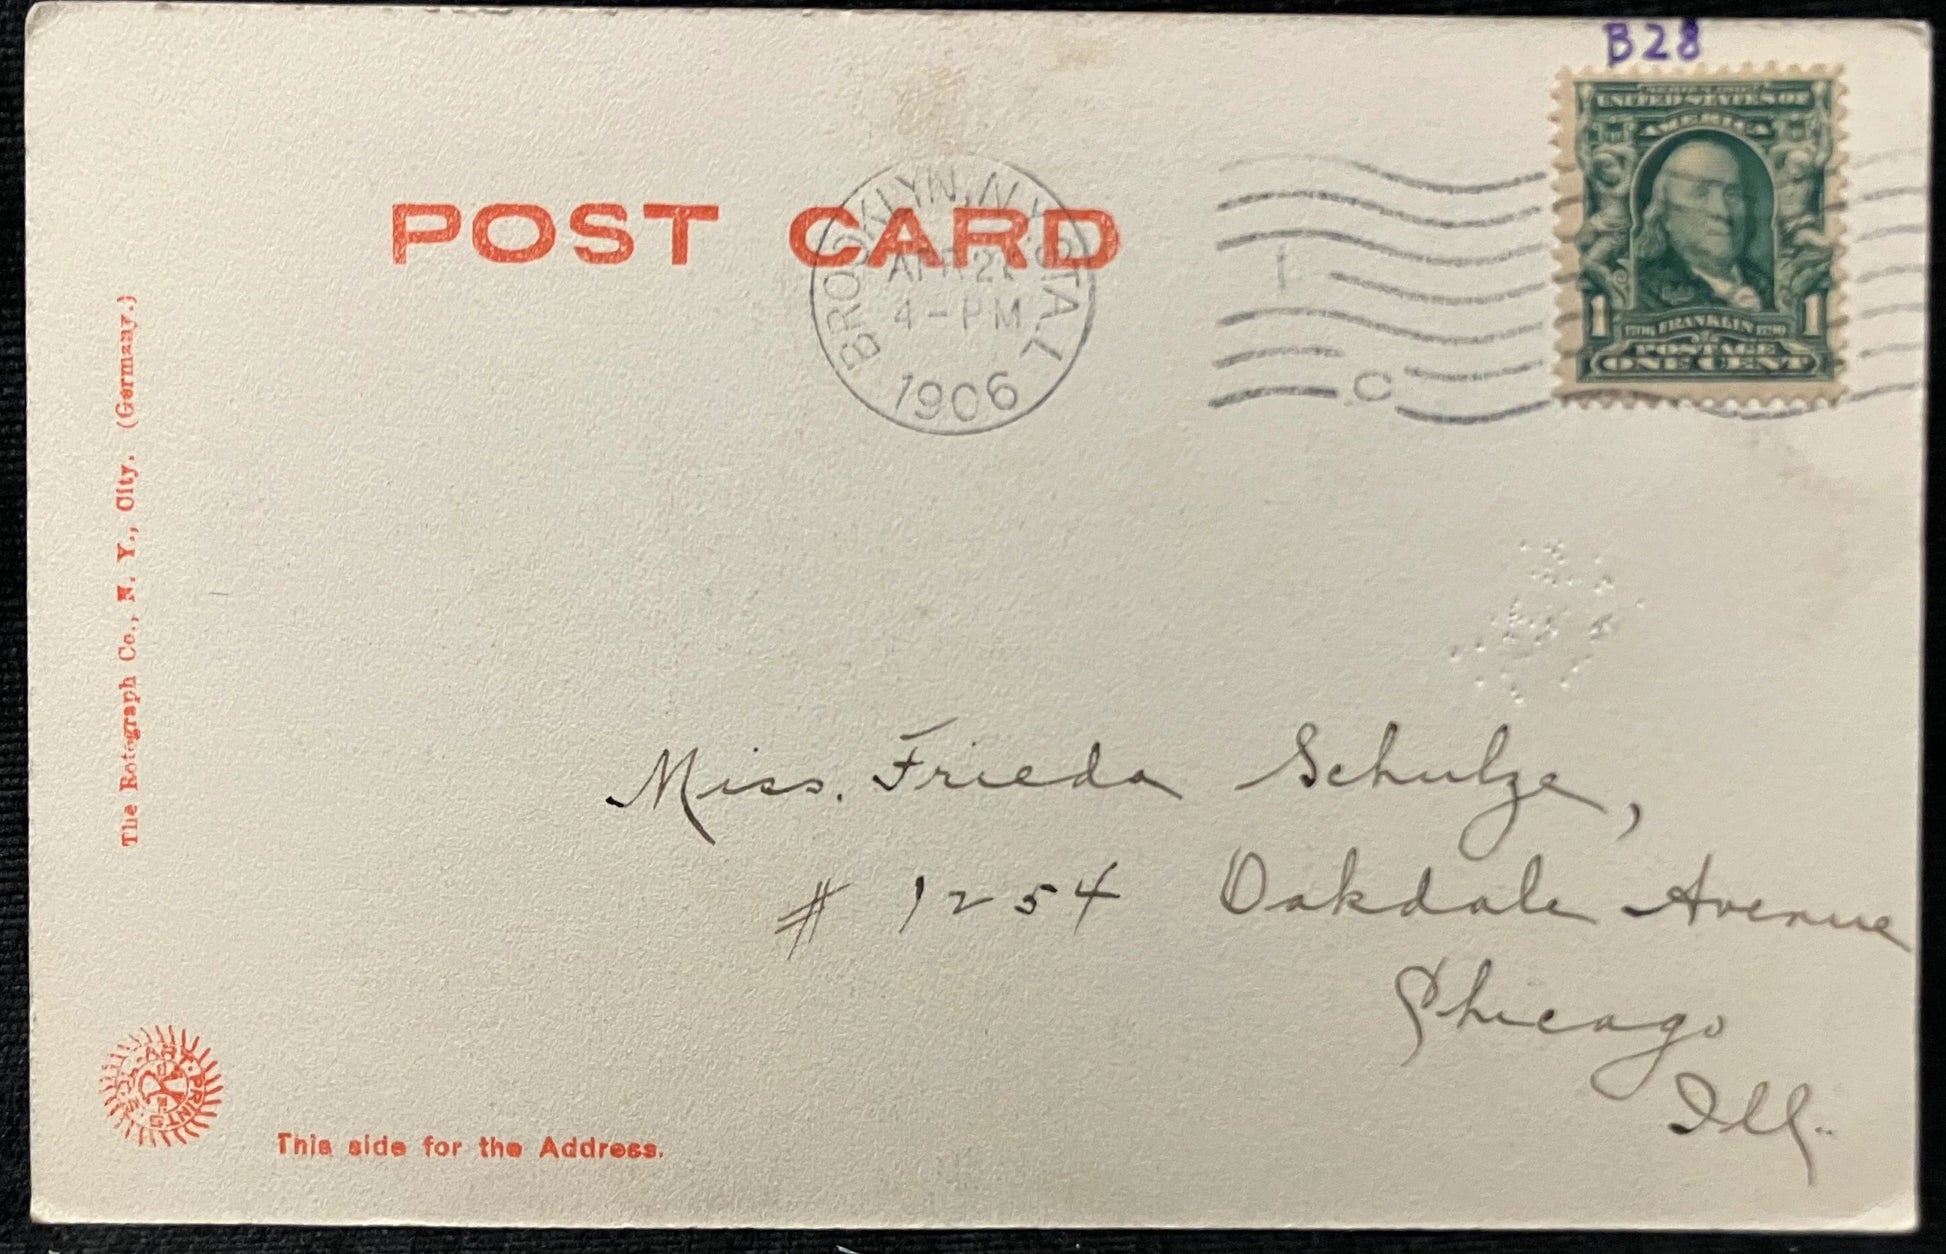 B28
UNITED STATES OF
AMERICA
1 1
FRANKLIN
POSTAGE
ONE CENT
POST CARD
BROOKLYN, N.Y. STA. L
APR
4-PM
1906
C
The Rotograph Co., N. Y., City. (Germany.)
Miss. Frieda Schulze,
# 1254 Oakdale Avenue
Chicago
Ill.
This side for the Address.